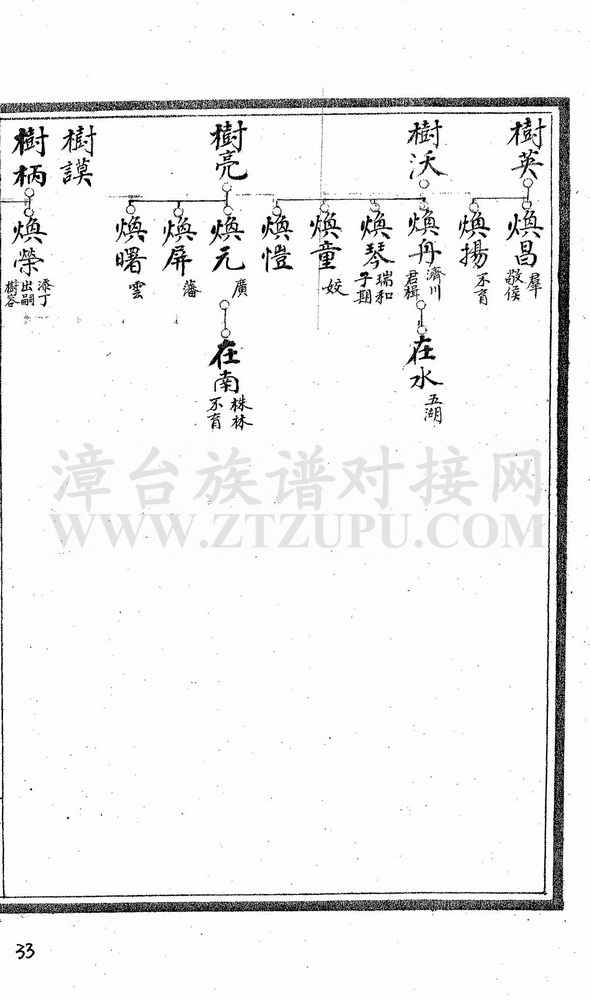 樹英
樹沃
樹亮
樹謨
樹柄
煥昌
羣
敬侯
煥揚
不育
煥丹
濟川
君楫
煥琴
瑞和
子期
煥童
姣
煥愷
煥元
廣
煥屏
藩
煥曙
雲
煥榮
添丁
出嗣
樹容
在水
五湖
在南
株林
不育
漳台族谱对接网
WWW.ZTZUPU.COM
33